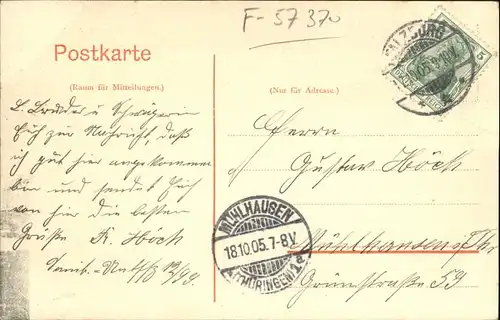 F-57370
Postkarte
(Raum für Mitteilungen.)
(Nur für Adresse.)
L. Bruder u. Schwägerin
Euch zur Nachricht, daß
ich gut hier angekommen
bin und sendet Euch
von hier die besten
Grüße K. Höch
Herrn
Gustav Höch
Mühlhausen i/Thr
Grünstraße 59
MÜHLHAUSEN
18.10.05.7-8V.
* (THÜRINGEN) 1 e